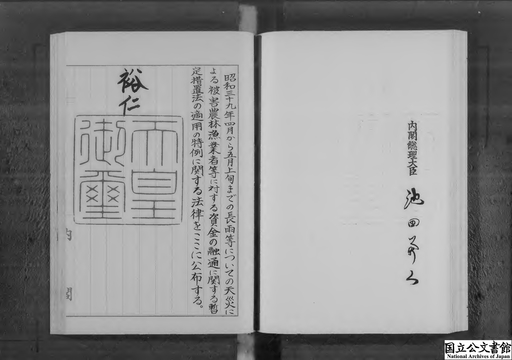 昭和三十九年四月から五月上旬までの長雨等についての天災に
よる被害農林漁業者等に対する資金の融通に関する暫
定措置法の適用の特例に関する法律をここに公布する。
裕仁
天皇
御璽
内閣
内閣総理大臣 池田勇人
国立公文書館
National Archives of Japan